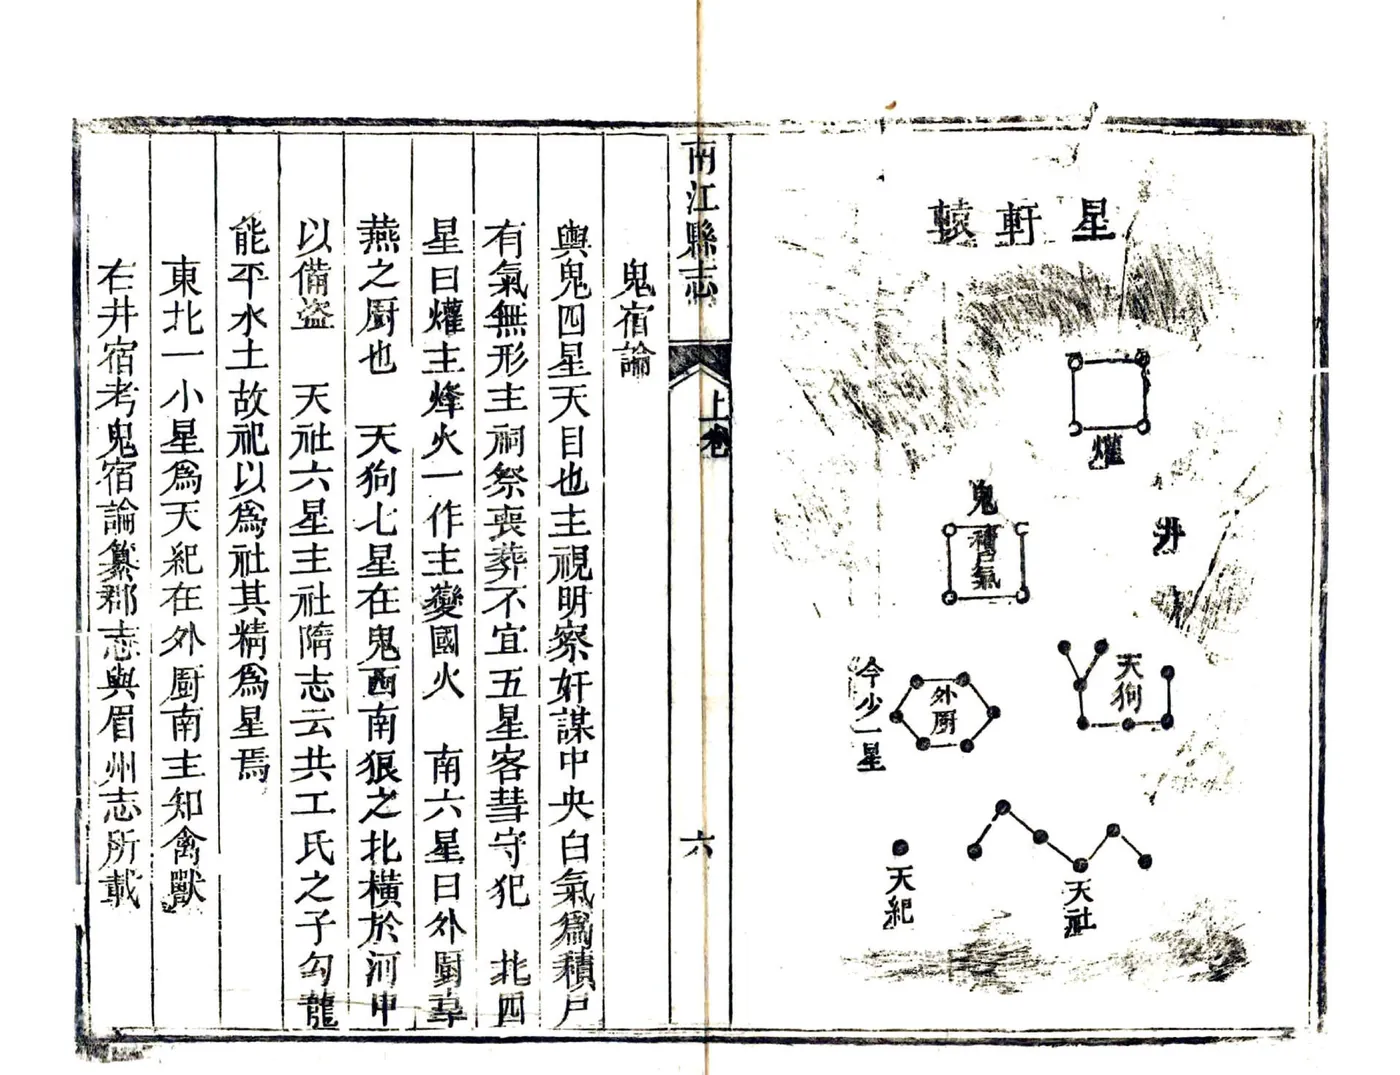 星軒轅
爟
鬼
積尸氣
井
天狗
外厨
今少一星
天社
天紀
南江縣志
上卷
六
鬼宿論
輿鬼四星天目也主視明察奸謀中央白氣爲積尸
有氣無形主祠祭喪葬不宜五星客彗守犯　北四
星曰爟主烽火一作主變國火　南六星曰外厨
燕之厨也　天狗七星在鬼西南狼之北橫於河中
以備盗　天社六星主社隋志云共工氏之子勾龍
能平水土故祀以爲社其精爲星焉
東北一小星爲天紀在外厨南主知禽獸
右井宿考鬼宿論纂郡志與眉州志所載